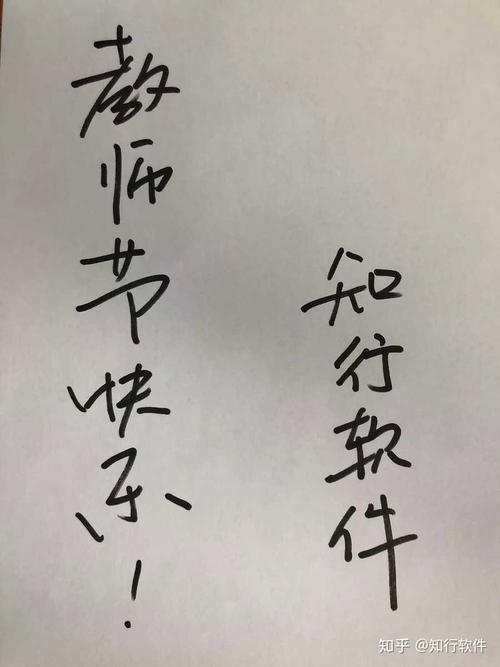 教师节快乐！
知行软件
知乎 @知行软件